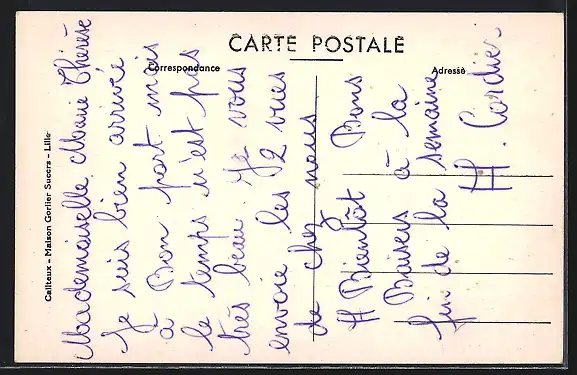 CARTE POSTALE
Correspondance
Adresse
Cailteux - Maison Corlier Succrs - Lille
Mademoiselle Marie Thérèse
Je suis bien arrivée
à Bon port mais
le temps n'est pas
très beau. Je vous
envoie les 2 vues
de chez nous
A Bientôt Bons
Baisers à la
fin de la semaine
H. Cordier